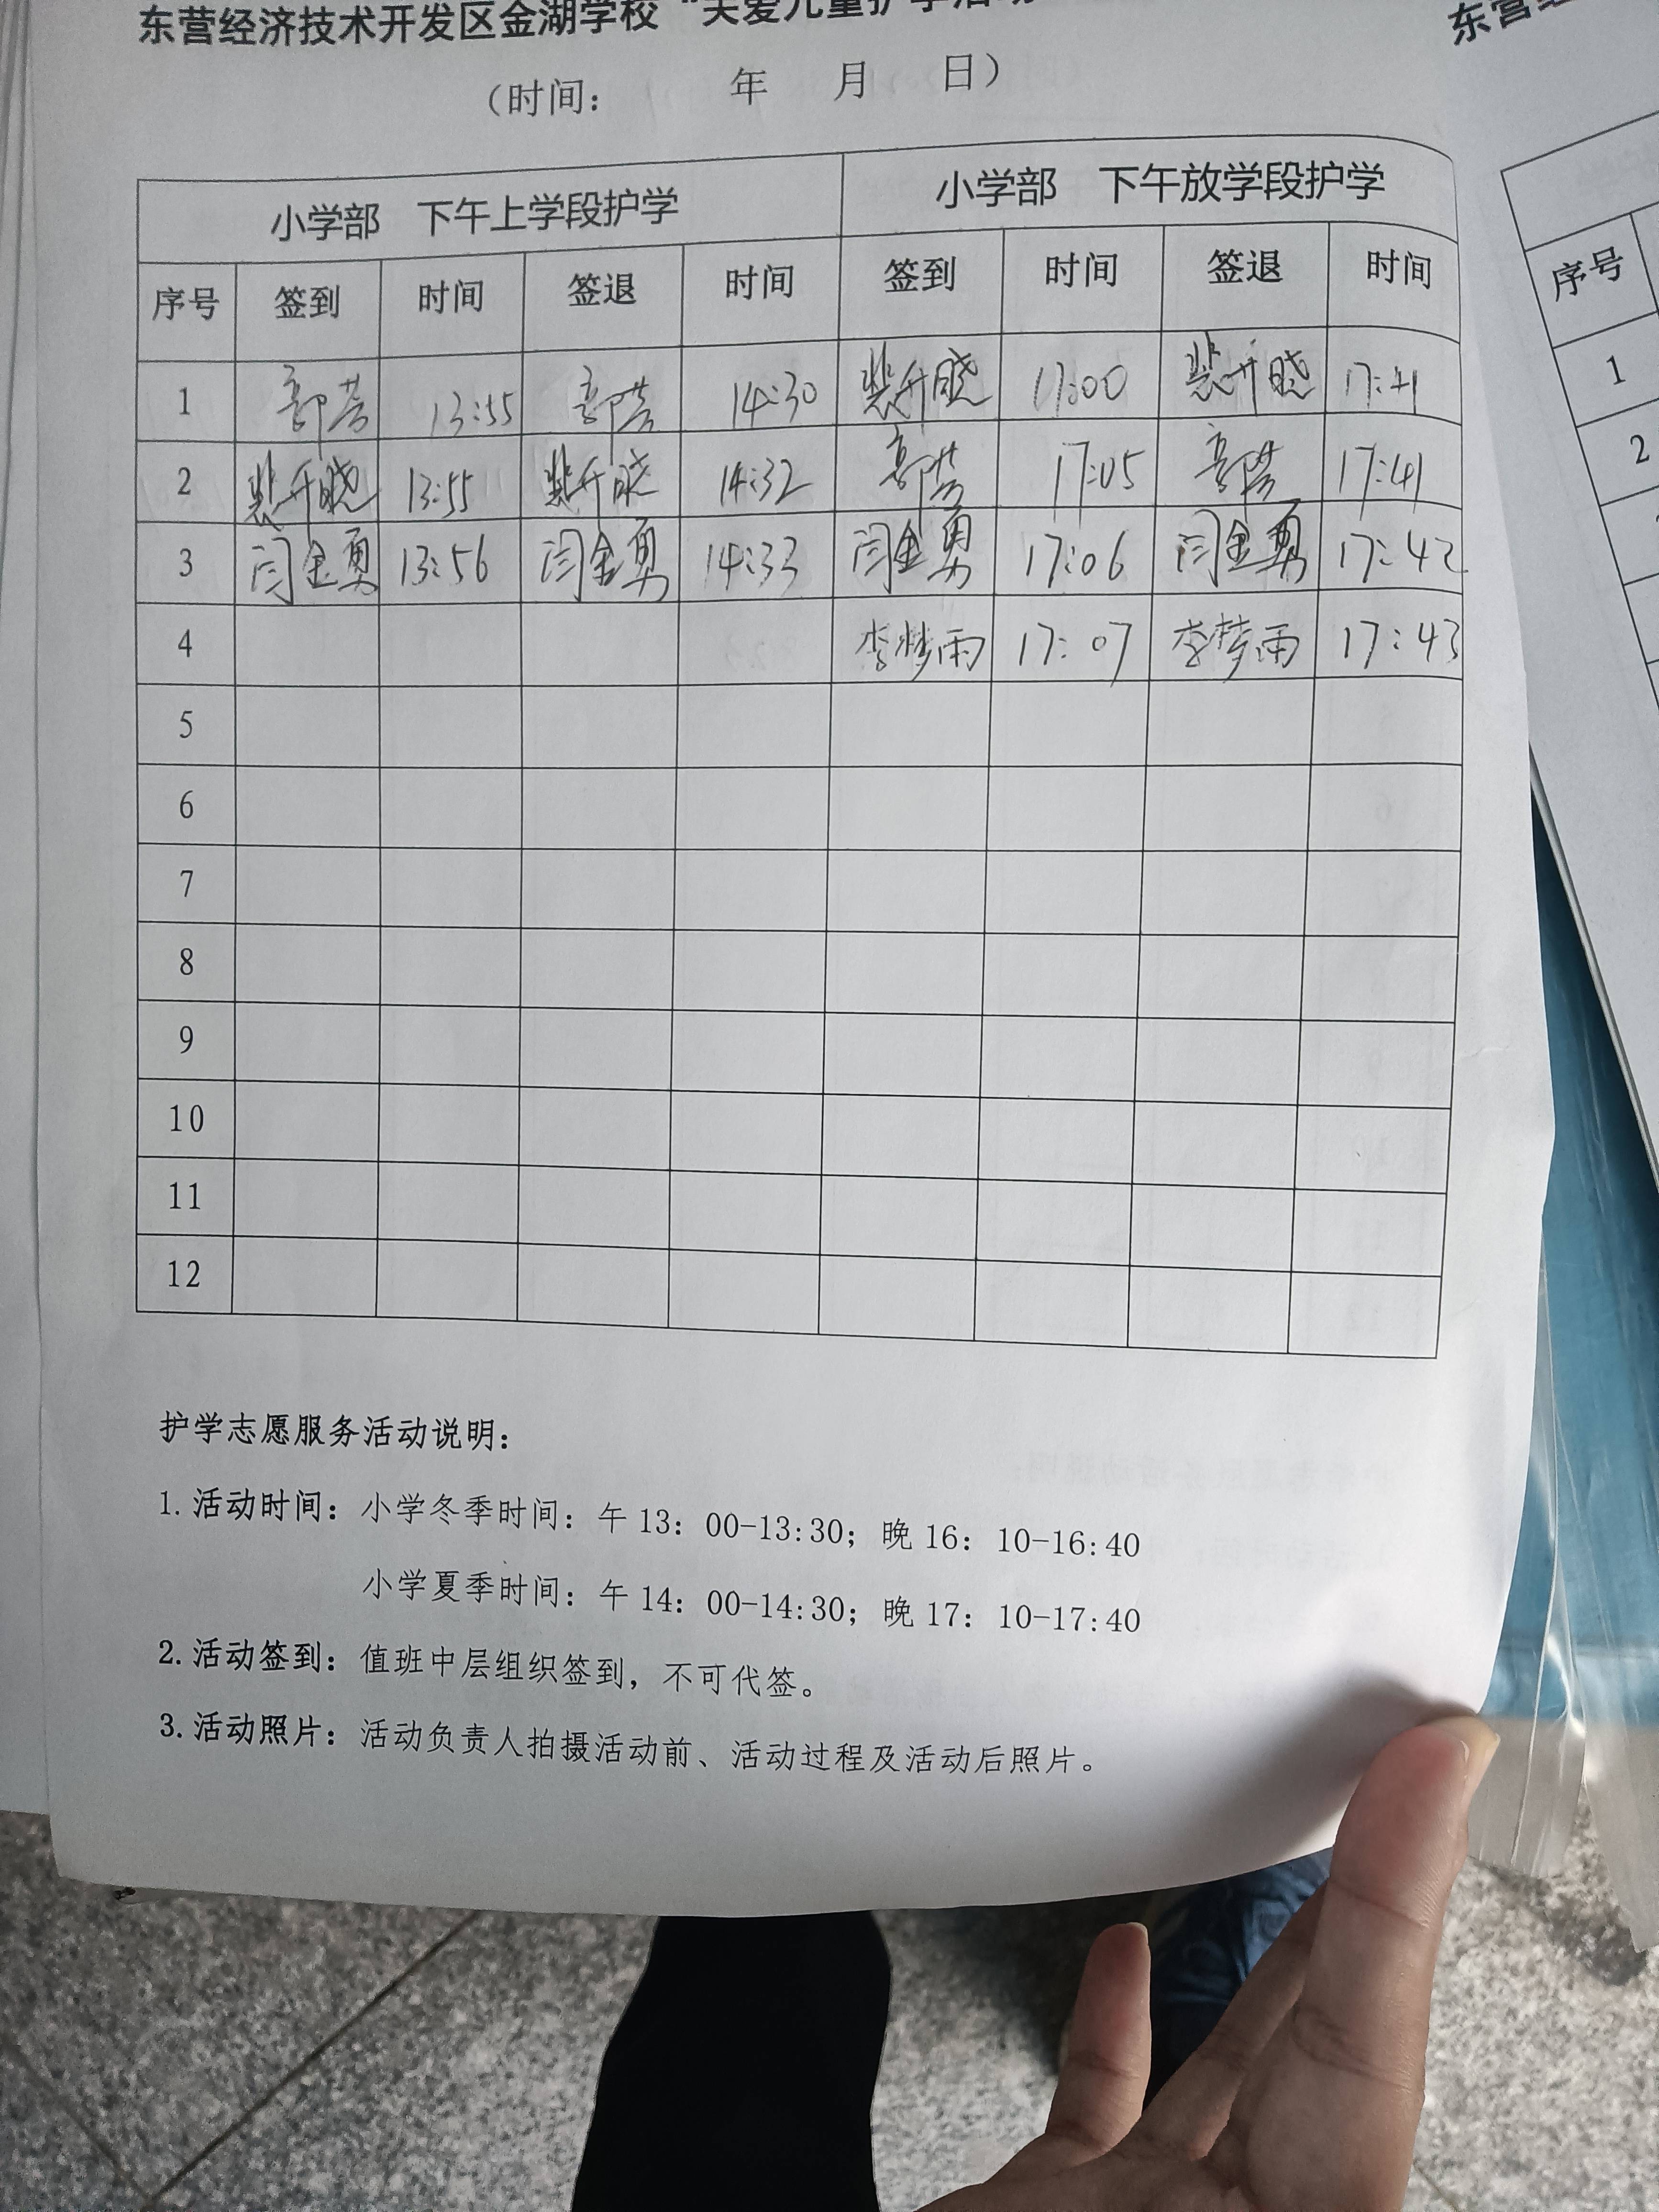 东营经济技术开发区金湖学校“关爱儿童护学活动
(时间: 年 月 日)
小学部 下午上学段护学 小学部 下午放学段护学
序号 签到 时间 签退 时间 签到 时间 签退 时间
1 13:55 14:30 裴升晓 17:00 裴升晓 17:41
2 裴升晓 13:55 裴升晓 14:32 17:05 17:41
3 闫金勇 13:56 闫金勇 14:33 闫金勇 17:06 闫金勇 17:42
4 李梦雨 17:07 李梦雨 17:43
5
6
7
8
9
10
11
12
护学志愿服务活动说明:
1.活动时间: 小学冬季时间: 午 13: 00-13:30; 晚 16: 10-16:40
小学夏季时间: 午 14: 00-14:30; 晚 17: 10-17:40
2.活动签到: 值班中层组织签到, 不可代签。
3.活动照片: 活动负责人拍摄活动前、活动过程及活动后照片。
东营
序号
1
2